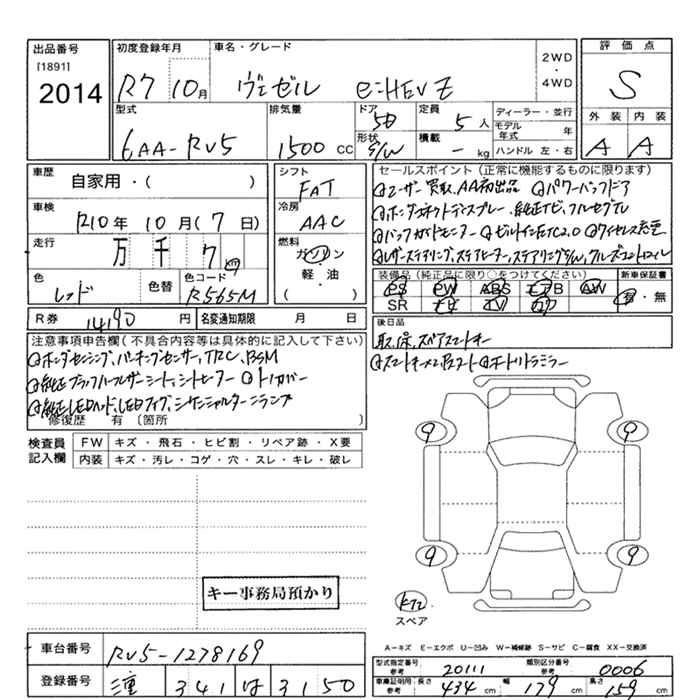 出品番号
[1891]
2014
初度登録年月
R7 10月
車名・グレード
ヴェゼル e:HEV Z
2WD
・
4WD
評価点
S
型式
6AA-RV5
排気量
1500 CC
ドア
5D
形状
S/W
定員
5人
積載
- kg
ディーラー・並行
モデル年式 年
ハンドル 左・右
外装 内装
A A
車歴
自家用・( )
車検
R10年 10月 (7日)
走行
万 千 7 km
色
レッド
色替
色コード
R565M
シフト
FAT
冷房
AAC
燃料
ガソリン
・
軽・油
( )
セールスポイント(正常に機能するものに限ります)
ユーザー買取、AA初出品 パワーバックドア
ホンダコネクトディスプレー、純正ナビ、フルセグTV
バックガイドモニター ビルトインETC2.0 ワイヤレス充電
レザーステアリング、ステアヒーター、ステアリングSW、クルーズコントロール
装備品(純正品に限り○をつけてください)
新車保証書
PS PW ABS エアB AW
SR ナビ TV カワ
有・無
R券 14190円
名変通知期限 月 日
後日品
取、保、スペアスマートキー
注意事項申告欄(不具合内容等は具体的に記入して下さい)
ホンダセンシング、パーキングセンサー、TRC、BSM
純正ブラックハーフレザーシート、シートヒーター トノカバー
純正LEDヘッド、LEDフォグ、シーケンシャルターンランプ
スマートキー×2 オートリトラミラー
修復歴 有 〔箇所 〕
検査員
記入欄
FW キズ・飛石・ヒビ割・リペア跡・X要
内装 キズ・汚レ・コゲ・穴・スレ・キレ・破レ
9 9
9 9
キー事務局預かり
スペア
A-キズ E-エクボ U-凹み W-補修跡 S-サビ C-腐食 XX-交換済
車台番号
RV5-1278169
登録番号
341 は 3150
型式指定番号 参考
20111
類別区分番号 参考
0006
車庫証明用 参考
長さ 434 cm
幅 179 cm
高さ 159 cm